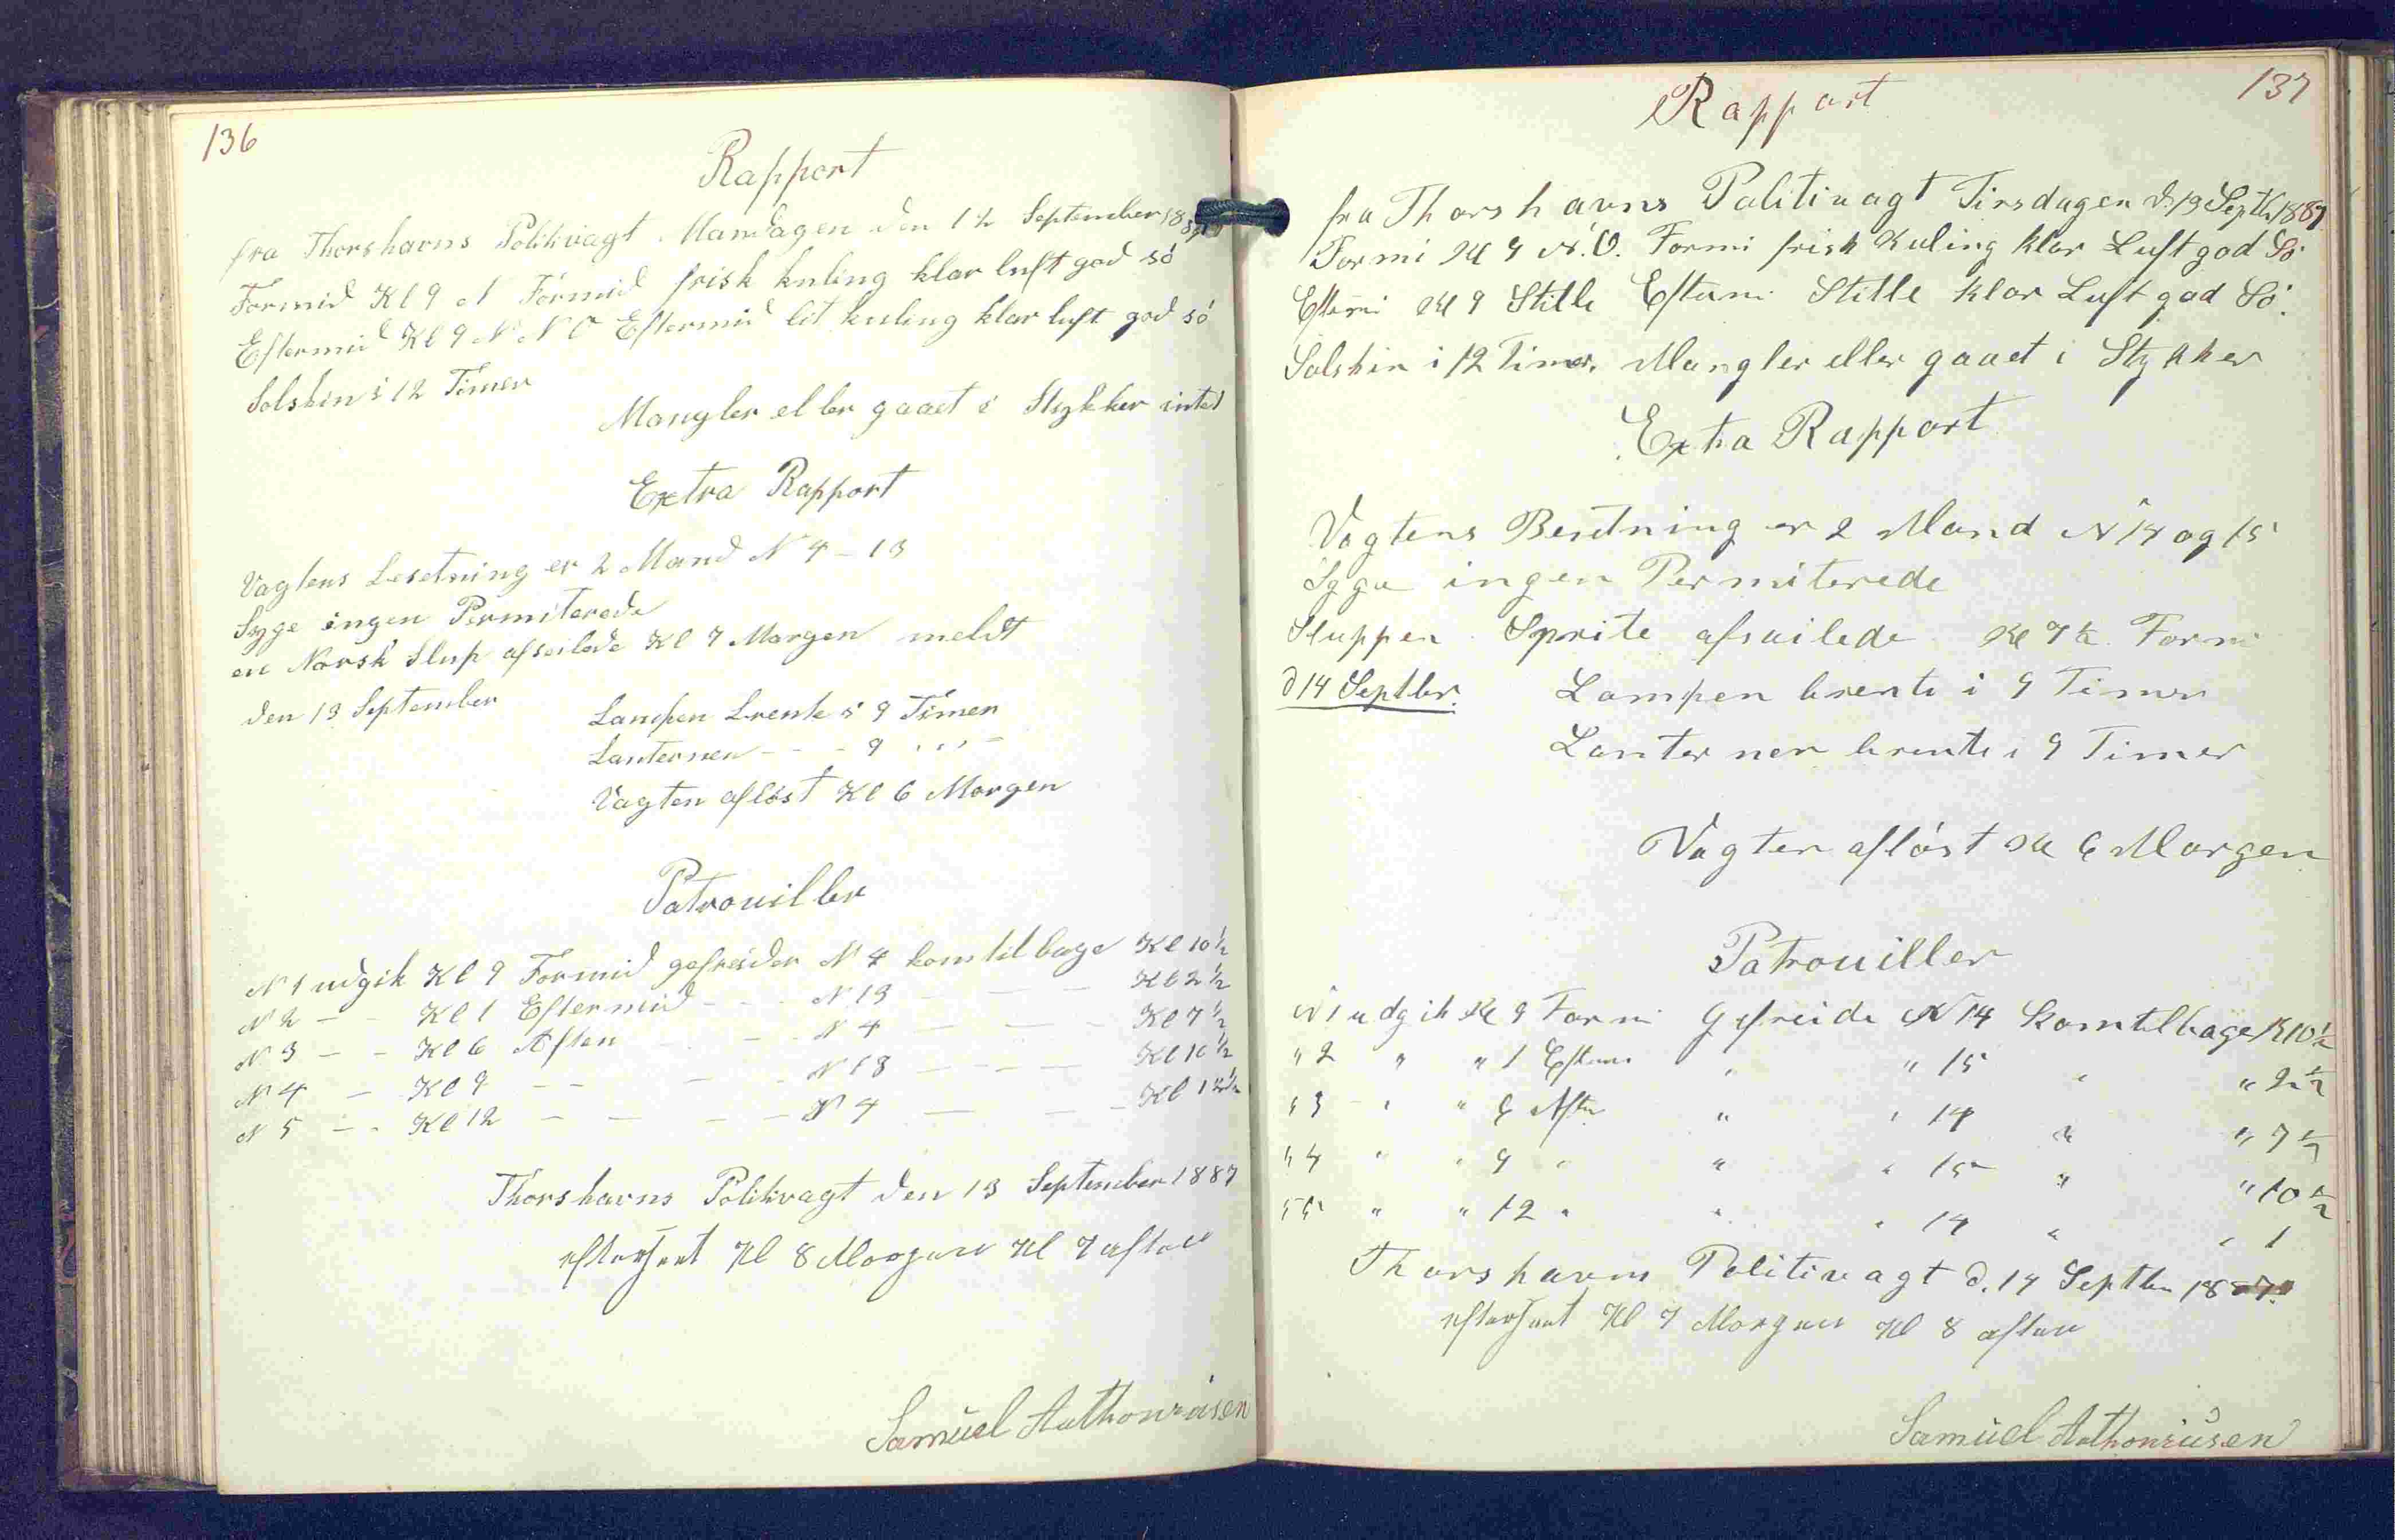 136
Rapport
fra Thorshavns Politivagt Mandagen den 12 September 1887
Formid Kl 9 N Formid frisk kuling klar luft god sö
Eftermid Kl 9 N N O Eftermid lit kuling klar luft god sö
Solskin i 12 Timer
Mangler eller gaaet i Stykker intet
Extra Rapport
Vagtens Besetning er 2 Mand N 4 - 13
Syge ingen Permiterede
en Norsk Slup afseilede Kl 7 Morgen meldt
den 13 September
Lampen brente i 9 Timer
Lanternen - - - 9 " " -
Vagten aflöst Kl 6 Morgen
Patrouiller
N 1 udgik Kl 9 Formid gefreider N 4 kom tilbage Kl 10 ½
N 2 - - Kl 1 Eftermid - - - N 13 - - - Kl 2 ½
N 3 - - Kl 6 Aften - - - N 4 - - - Kl 7 ½
N 4 - Kl 9 - - - - N 13 - - - Kl 10 ½
N 5 - - Kl 12 - - - - N 4 - - - Kl 1 ½
Thorshavns Politivagt den 13 September 1887
efterseet Kl 8 Morgen Kl 7 aften
Samüel Anthoniusen
137
Rapport
fra Thorshavns Politivagt Tirsdagen d. 13 Septb 1887
Formi Kl 9 N.O. Formi frisk Kuling klar Luft god Sö
Eftermi Kl 9 Stille Eftermi Stille klar Luft god Sö.
Solskin i 12 Timer. Mangler eller gaaet i Stykker
Extra Rapport
Vagtens Besetning er 2 Mand N 14 og 15
Syge ingen Permiterede
Sluppen Sprite afsailede Kl 7 ½ Formi
d 14 Septbr.
Lampen brente i 9 Timer
Lanternen brente i 9 Timer
Vagten aflöst Kl 6 Morgen
Patrouiller
N 1 udgik Kl 9 Formi Gefreide N 14 Kom tilbage Kl 10 ½
" 2 " " 1 Efterm " " 15 " " 2 ½
" 3 " " 6 Aften " " 14 " " 7 ½
" 4 " " 9 " " " 15 " " 10 ½
" 5 " " 12 " " " 14 " " 1
Thorshavns Politivagt d. 14 Septbr 1887
efterseet Kl 7 Morgen Kl 8 aften
Samüel Anthoniüsen